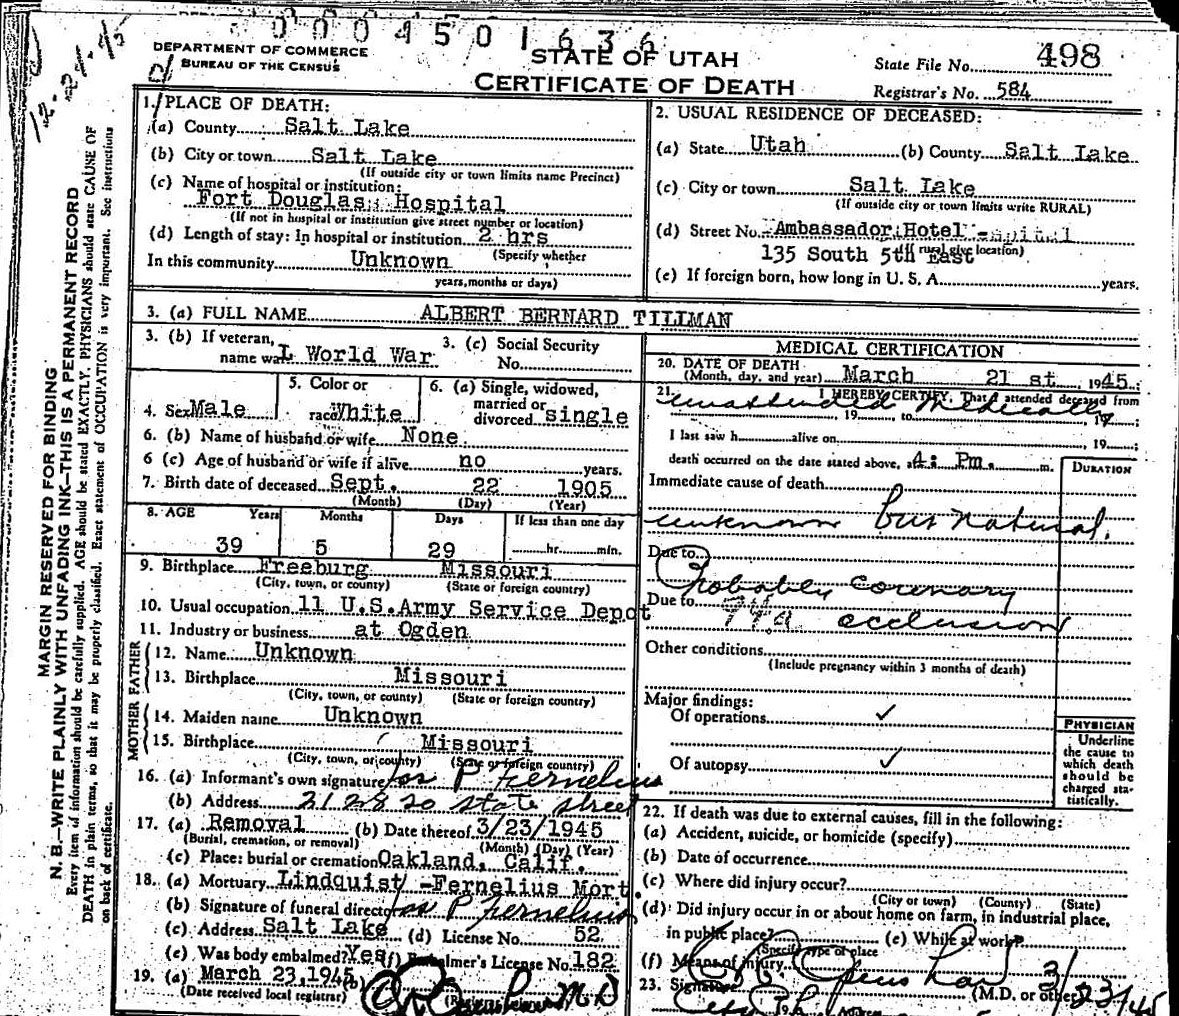 0 0 0 4 5 0 1 6 3 6
DEPARTMENT OF COMMERCE
BUREAU OF THE CENSUS
STATE OF UTAH
CERTIFICATE OF DEATH
State File No. 498
Registrar's No. 584
12-21-45
MARGIN RESERVED FOR BINDING
N. B.—WRITE PLAINLY WITH UNFADING INK—THIS IS A PERMANENT RECORD
Every item of information should be carefully supplied. AGE should be stated EXACTLY. PHYSICIANS should state CAUSE OF
DEATH in plain terms, so that it may be properly classified. Exact statement of OCCUPATION is very important. See instructions
on back of certificate.
1. PLACE OF DEATH:
(a) County Salt Lake
(b) City or town Salt Lake
(If outside city or town limits name Precinct)
(c) Name of hospital or institution:
Fort Douglas Hospital
(If not in hospital or institution give street number or location)
(d) Length of stay: In hospital or institution 2 hrs
(Specify whether
In this community Unknown
years, months or days)
2. USUAL RESIDENCE OF DECEASED:
(a) State Utah (b) County Salt Lake
(c) City or town Salt Lake
(If outside city or town limits write RURAL)
(d) Street No. Ambassador Hotel
135 South 5th East
(If rural give location)
(e) If foreign born, how long in U. S. A. years.
3. (a) FULL NAME ALBERT BERNARD TILLMAN
3. (b) If veteran, name war L World War
3. (c) Social Security No.
4. Sex Male
5. Color or race White
6. (a) Single, widowed, married or divorced single
6. (b) Name of husband or wife None
6 (c) Age of husband or wife if alive no years.
7. Birth date of deceased Sept. 22 1905
(Month) (Day) (Year)
8. AGE Years Months Days If less than one day
39 5 29 hr. min.
9. Birthplace Freeburg Missouri
(City, town, or county) (State or foreign country)
10. Usual occupation 11 U.S.Army Service Depot
11. Industry or business at Ogden
FATHER
12. Name Unknown
13. Birthplace Missouri
(City, town, or county) (State or foreign country)
MOTHER
14. Maiden name Unknown
15. Birthplace Missouri
(City, town, or county) (State or foreign country)
16. (a) Informant's own signature P Fernelius
(b) Address 2128 So State Street
17. (a) Removal (b) Date thereof 3/23/1945
(Burial, cremation, or removal) (Month) (Day) (Year)
(c) Place: burial or cremation Oakland, Calif.
18. (a) Mortuary Lindquist -Fernelius Mort.
(b) Signature of funeral director P Fernelius
(c) Address Salt Lake (d) License No. 52
(e) Was body embalmed? Yes (f) Embalmer's License No. 182
19. (a) March 23, 1945 (b)
(Date received local registrar) M D
MEDICAL CERTIFICATION
20. DATE OF DEATH
(Month, day, and year) March 21 st, 1945;
21. I HEREBY CERTIFY, That I attended deceased from
unattended Medically 19 to 19;
I last saw h alive on 19;
death occurred on the date stated above, at 4: Pm. m.
DURATION
Immediate cause of death
unknown but natural.
Due to
Probably coronary
Due to 94a occlusion
Other conditions
(Include pregnancy within 3 months of death)
Major findings:
Of operations ✓
Of autopsy ✓
PHYSICIAN
Underline
the cause to
which death
should be
charged sta-
tistically.
22. If death was due to external causes, fill in the following:
(a) Accident, suicide, or homicide (specify)
(b) Date of occurrence
(c) Where did injury occur?
(City or town) (County) (State)
(d) Did injury occur in or about home on farm, in industrial place,
in public place? (e) While at work?
(Specify type of place
(f) Means of injury
23. Signature (M.D. or other) 3/23/45
Address